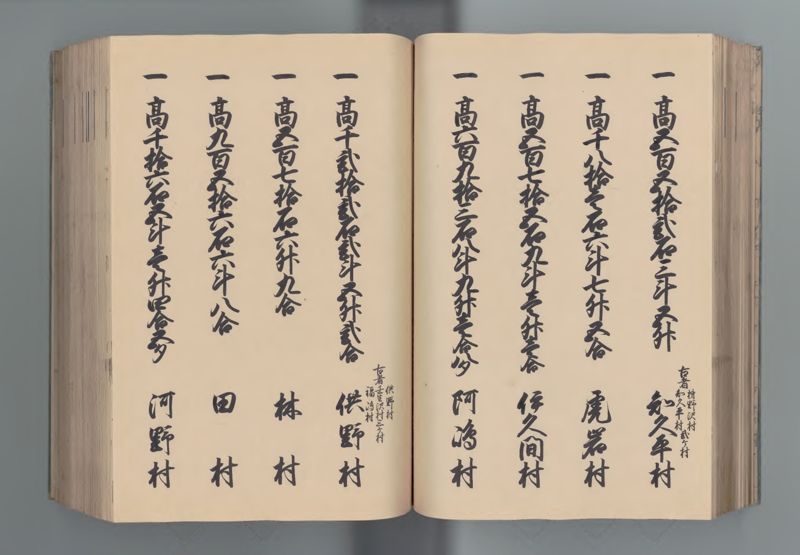 一 高五百五拾弐石三斗五升 知久平村
古者 柿野沢村 知久平村 弐ケ村
一 高千八拾壱石六斗七升五合 虎岩村
一 高五百七拾五石九斗壱升壱合 伊久間村
一 高六百九拾三石八斗九升壱合 阿嶋村
一 高千弐拾弐石弐斗五升弐合 供野村
古者 供野村 壬生沢村 福嶋村 三ケ村
一 高五百七拾石六升九合 林村
一 高九百五拾六石六斗八合 田村
一 高千拾六石五斗壱升四合五夕 河野村